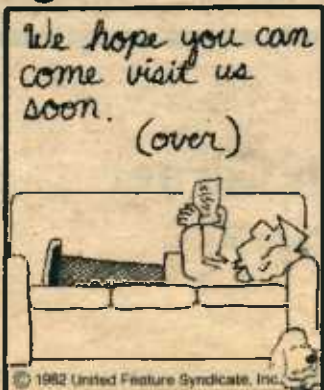 We hope you can
come visit us
soon.
(over)
© 1982 United Feature Syndicate, Inc.